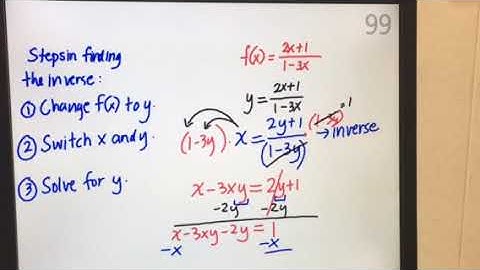 99
Steps in finding
the inverse:
① Change f(x) to y.
② Switch x and y.
③ Solve for y.
f(x) = 2x+1 / 1-3x
y = 2x+1 / 1-3x
(1-3y) · x = 2y+1 / (1-3y) (1-3y) = 1 → inverse
x - 3xy = 2y+1
-2y -2y
x - 3xy - 2y = 1
-x -x